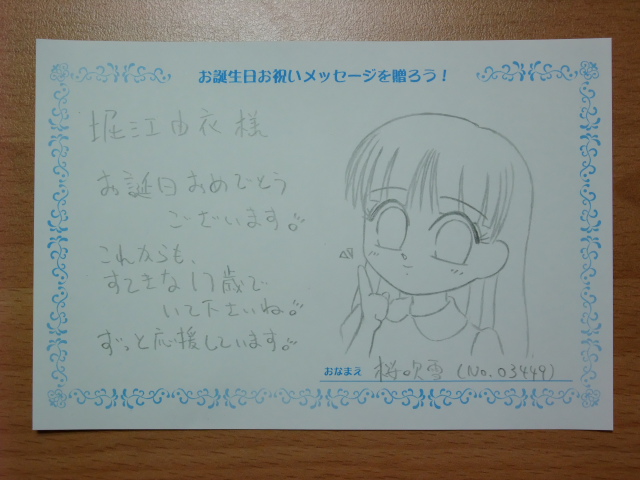 お誕生日お祝いメッセージを贈ろう！
堀江由衣様
お誕生日おめでとう
ございます。
これからも、
すてきな17歳で
いて下さいね。
ずっと応援しています。
おなまえ 桜吹雪 (No.03449)